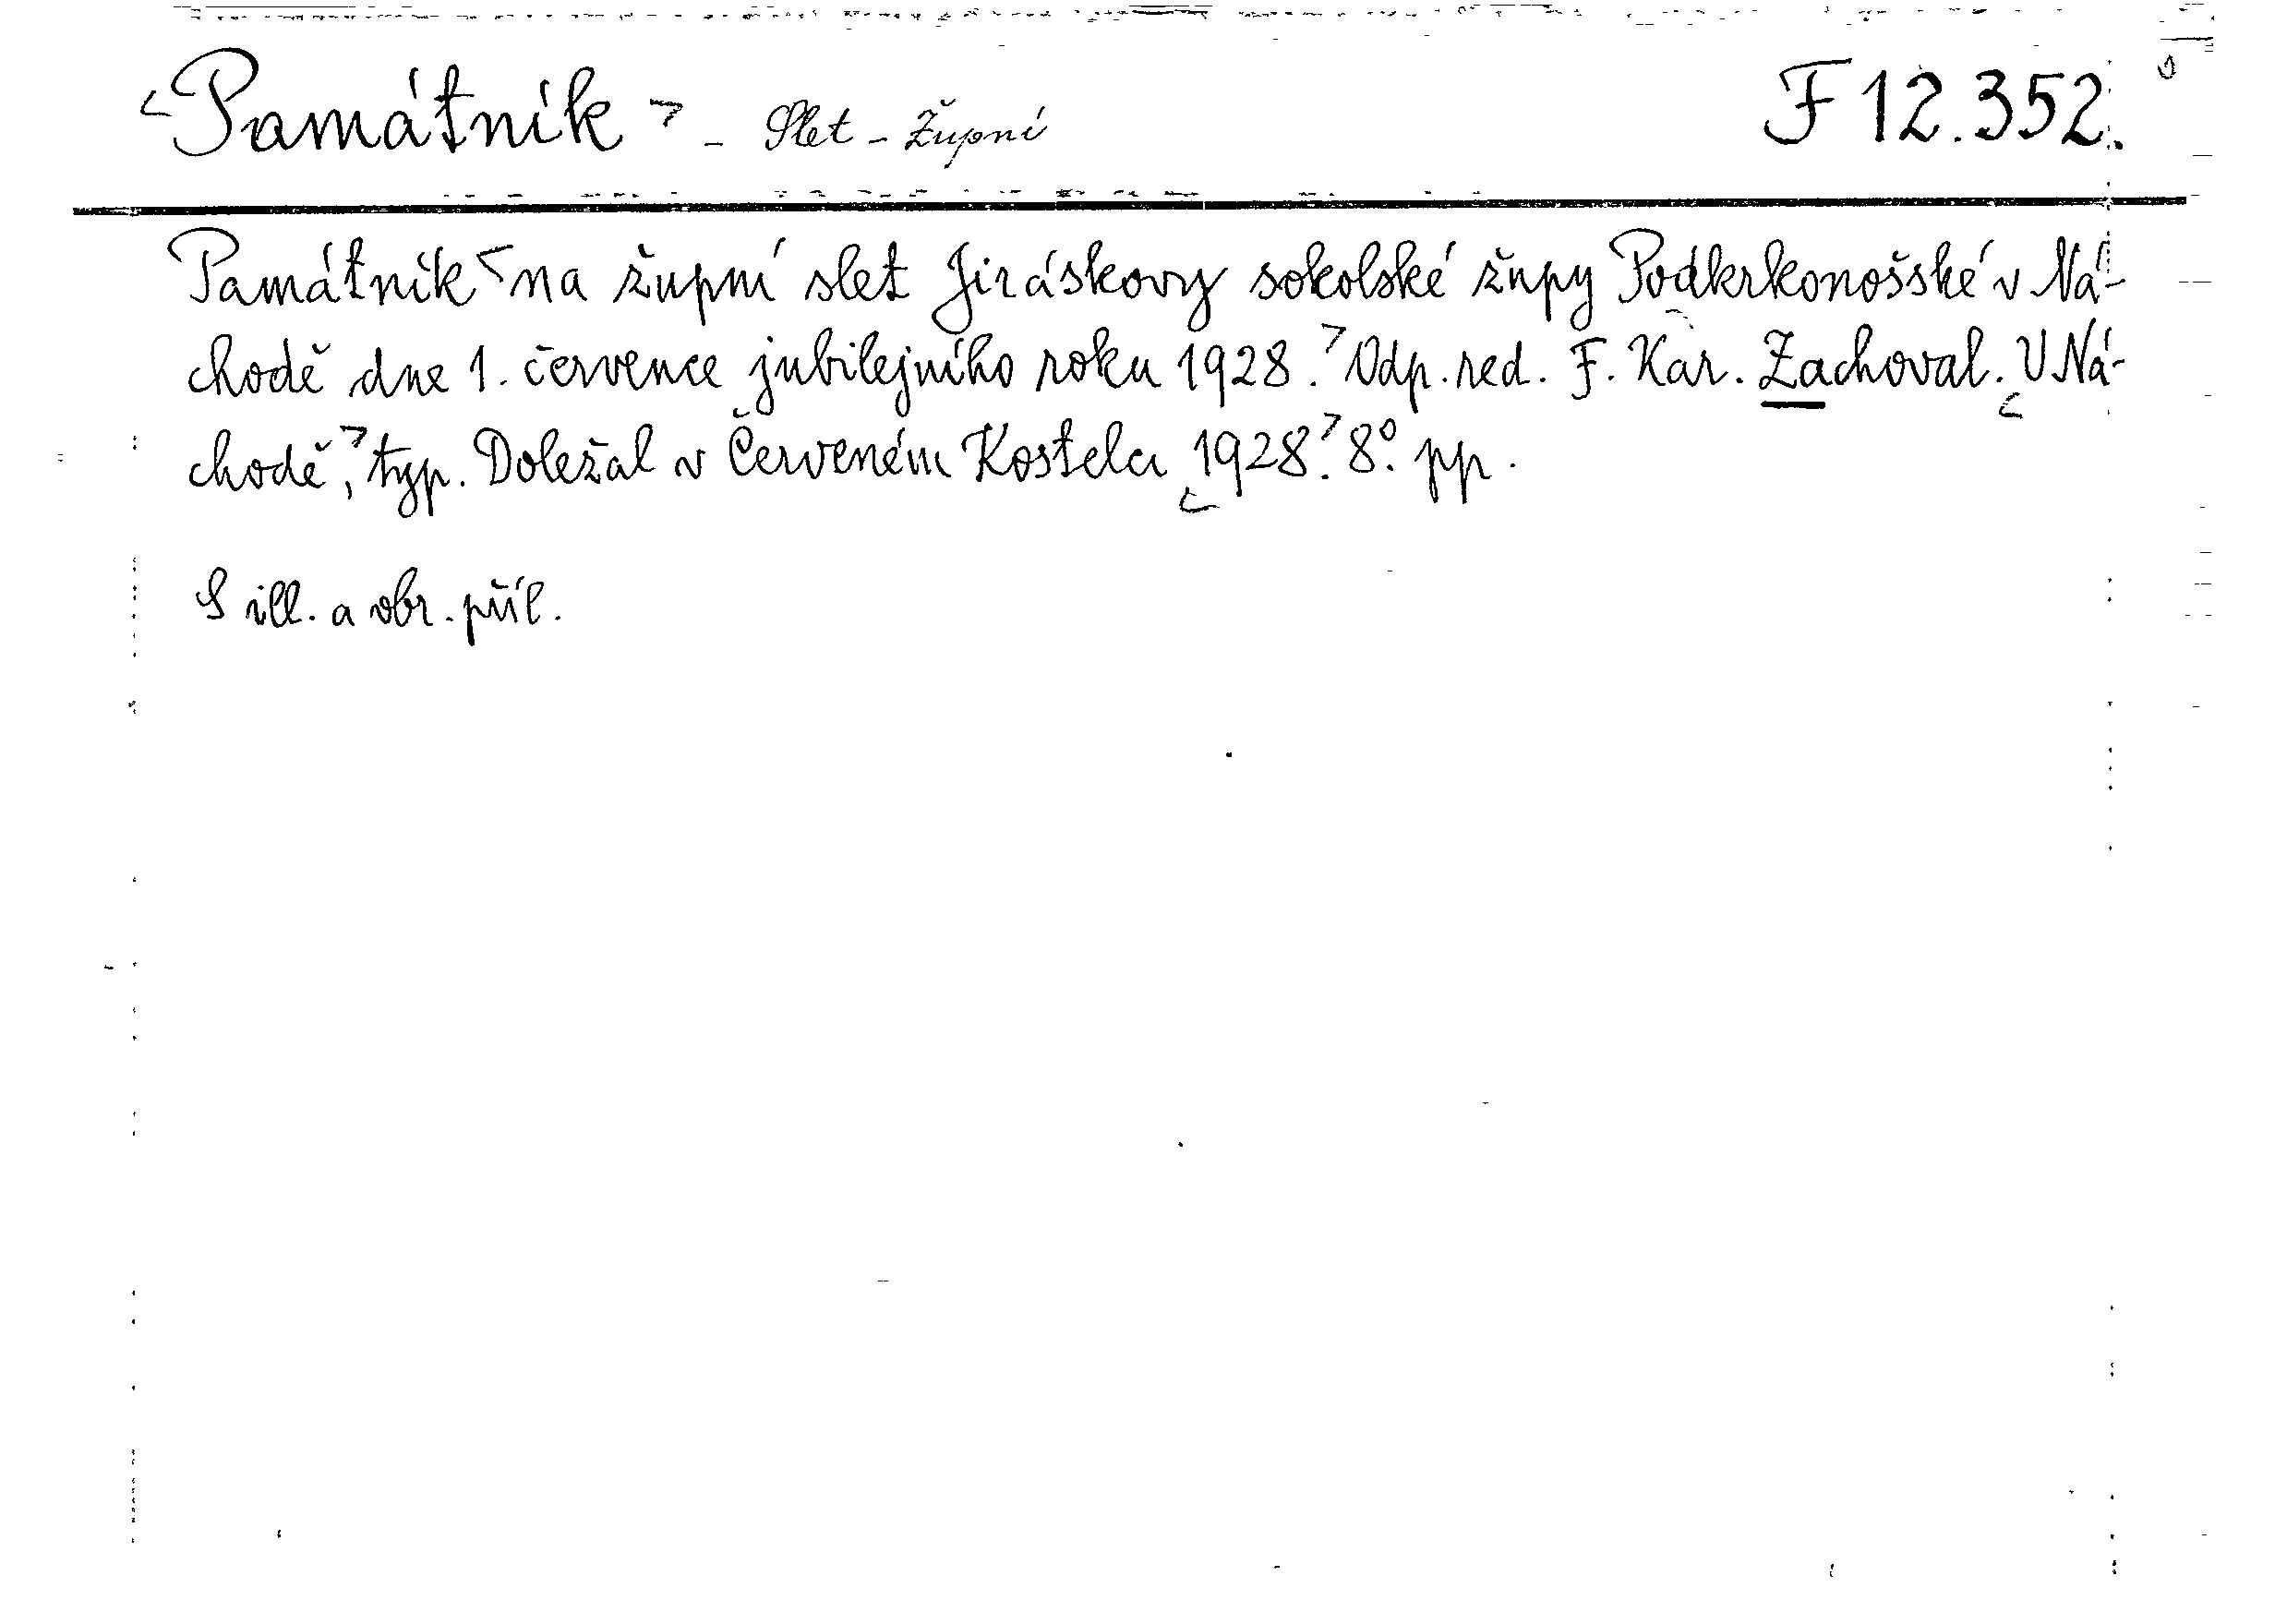 <Památník> - Slet - Župní F 12.352.
Památník <na župní slet Jiráskovy sokolské župy Podkrkonošské v Ná-
chodě dne 1. července jubilejního roku 1928.> Odp. red. F. Kar. Zachoval. <V Ná-
chodě,> typ. Doležal v Červeném Kostelci <1928.> 8°. pp.
S ill. a obr. příl.